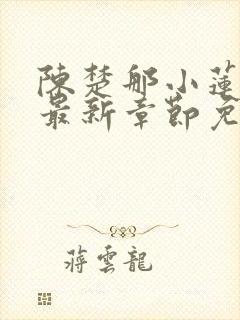 陳楚那小蓮
最新章節免
蔣雲龍